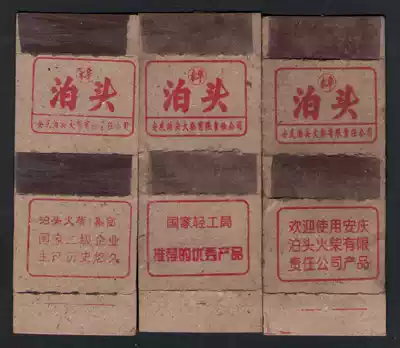 泊头
安庆泊头火柴有限责任公司
泊头
安庆泊头火柴有限责任公司
泊头
安庆泊头火柴有限责任公司
泊头火柴
国家二级企业
生产历史悠久
国家轻工局
推荐的优秀产品
欢迎使用安庆
泊头火柴有限
责任公司产品